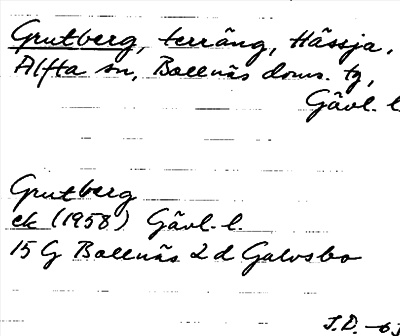 Grutberg, terräng, Hässja,
Alfta sn, Bollnäs doms. tg,
Gävl. l.
Grutberg
ek (1958) Gävl. l.
15 G Bollnäs 2 d Galvsbo
J.D. -63